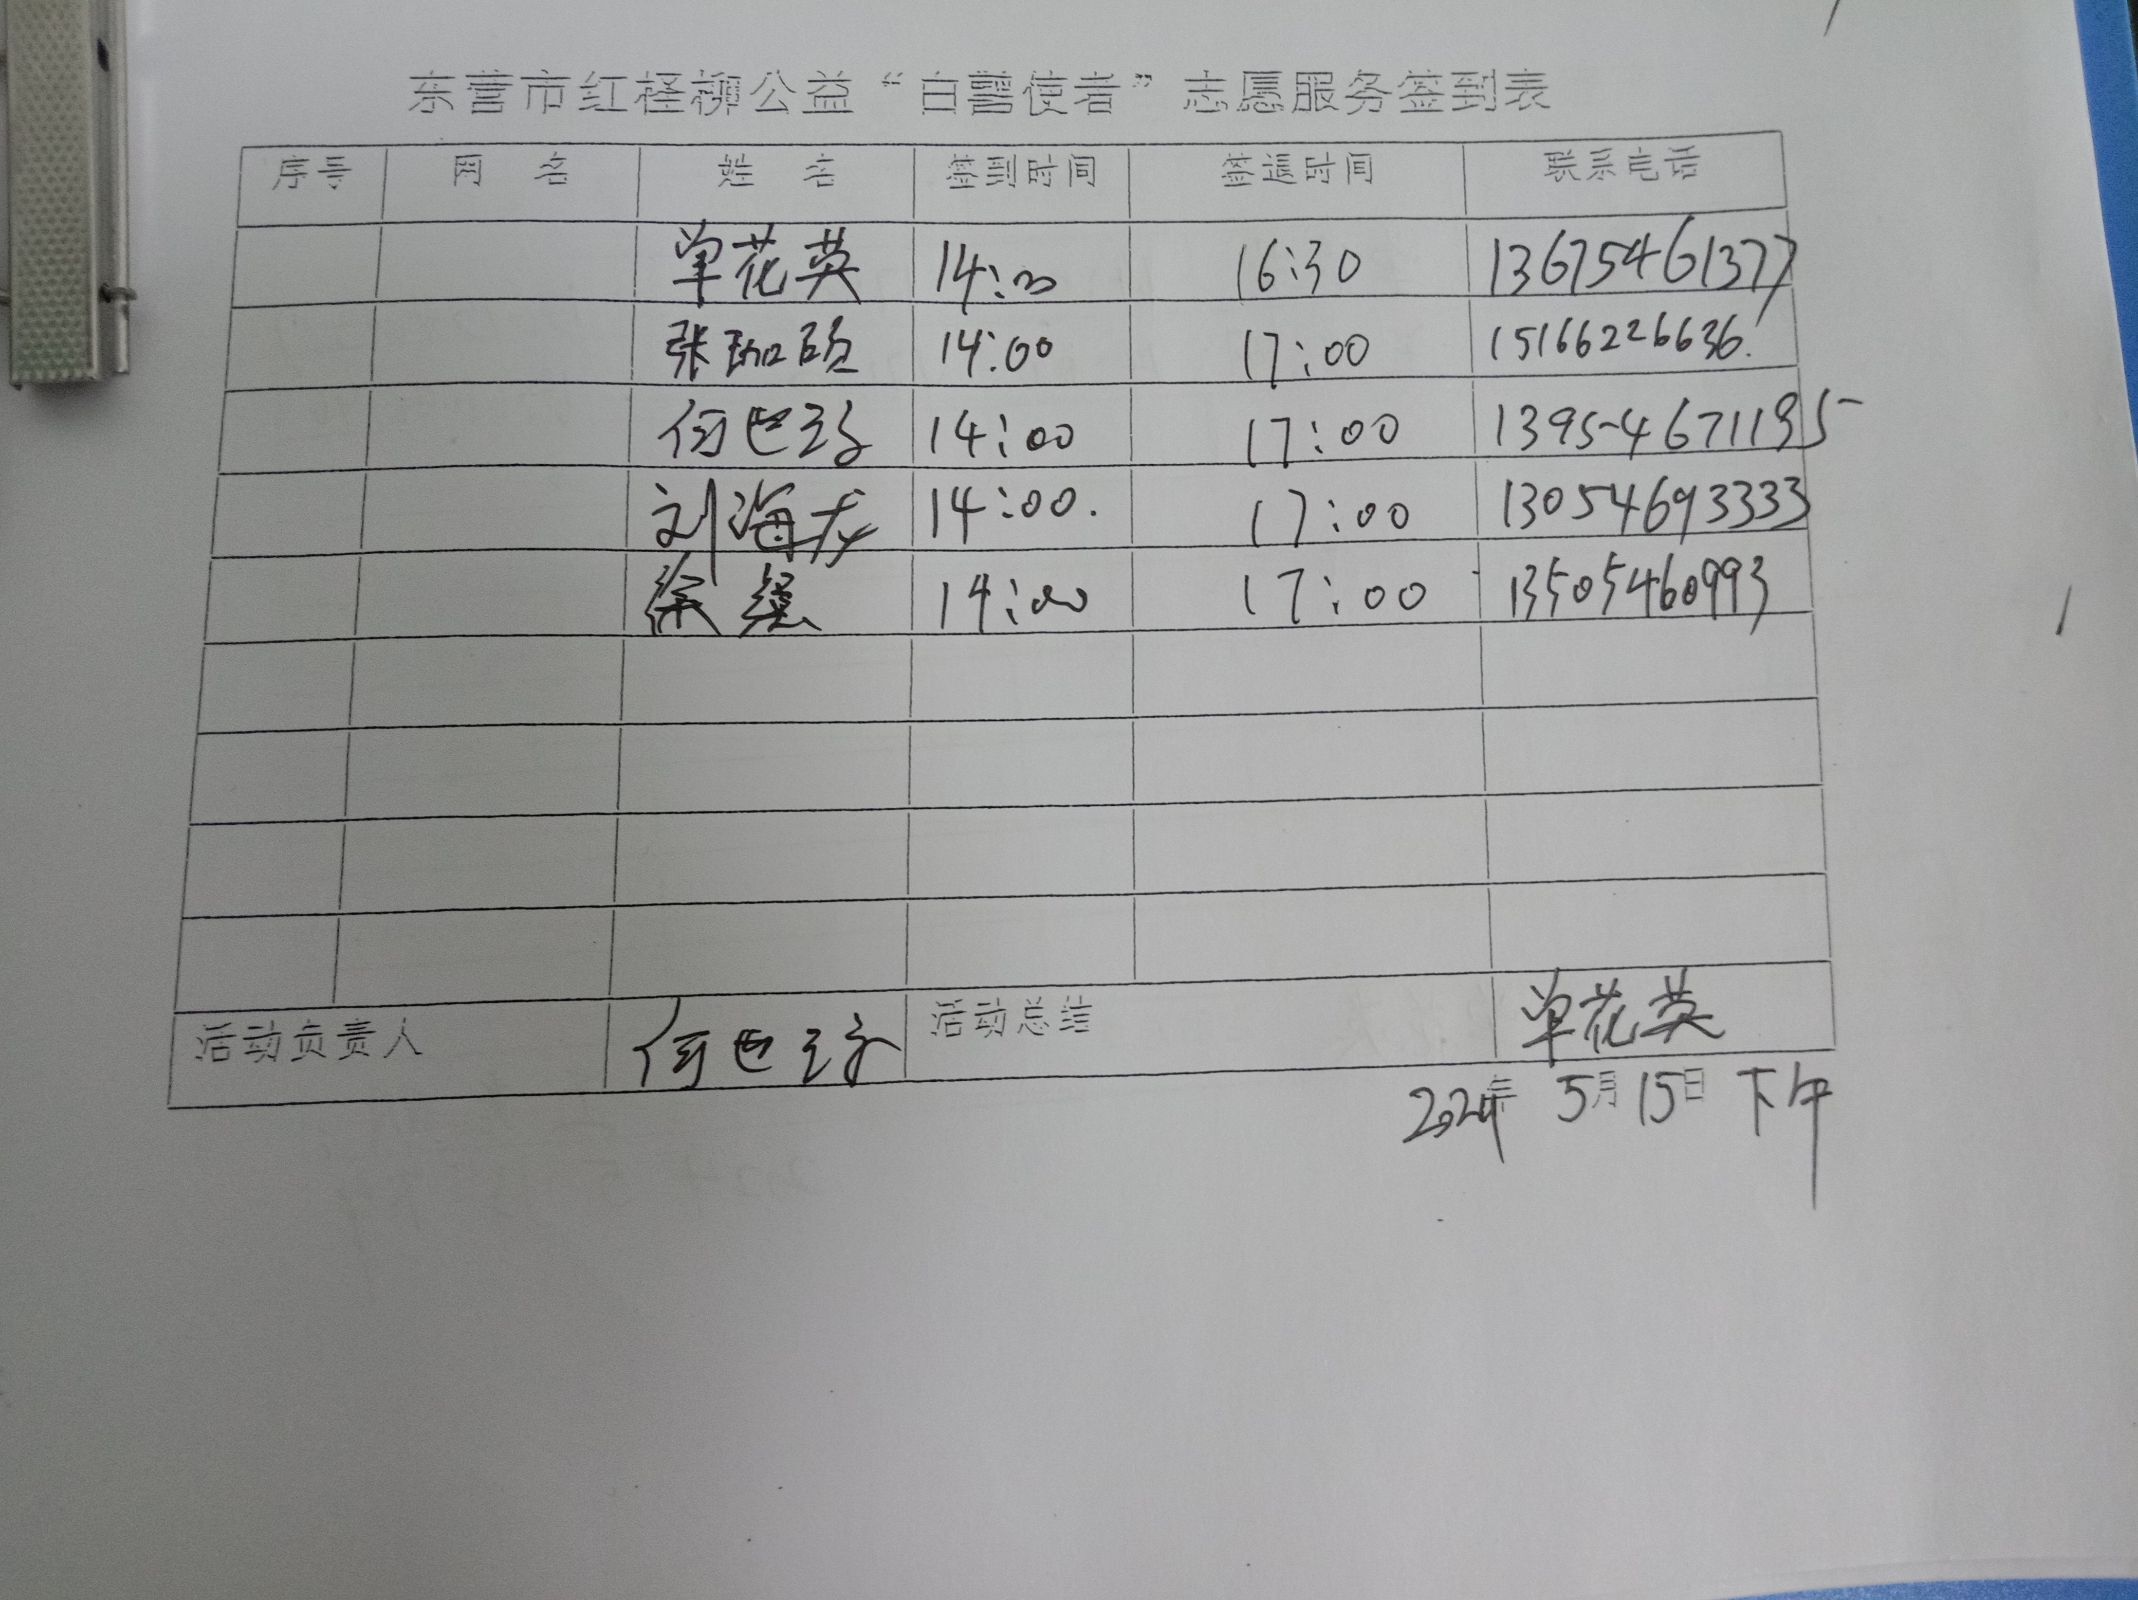 东营市红柽柳公益“白鹭使者”志愿服务签到表
序号 网名 姓名 签到时间 签退时间 联系电话
单花英 14:00 16:30 13675461377
张珈硕 14:00 17:00 15166226636.
何世珍 14:00 17:00 13954671195
刘海龙 14:00. 17:00 13054693333
徐 14:00 17:00 13505460993
活动负责人 何世珍 活动总结 单花英
2024年 5月15日 下午